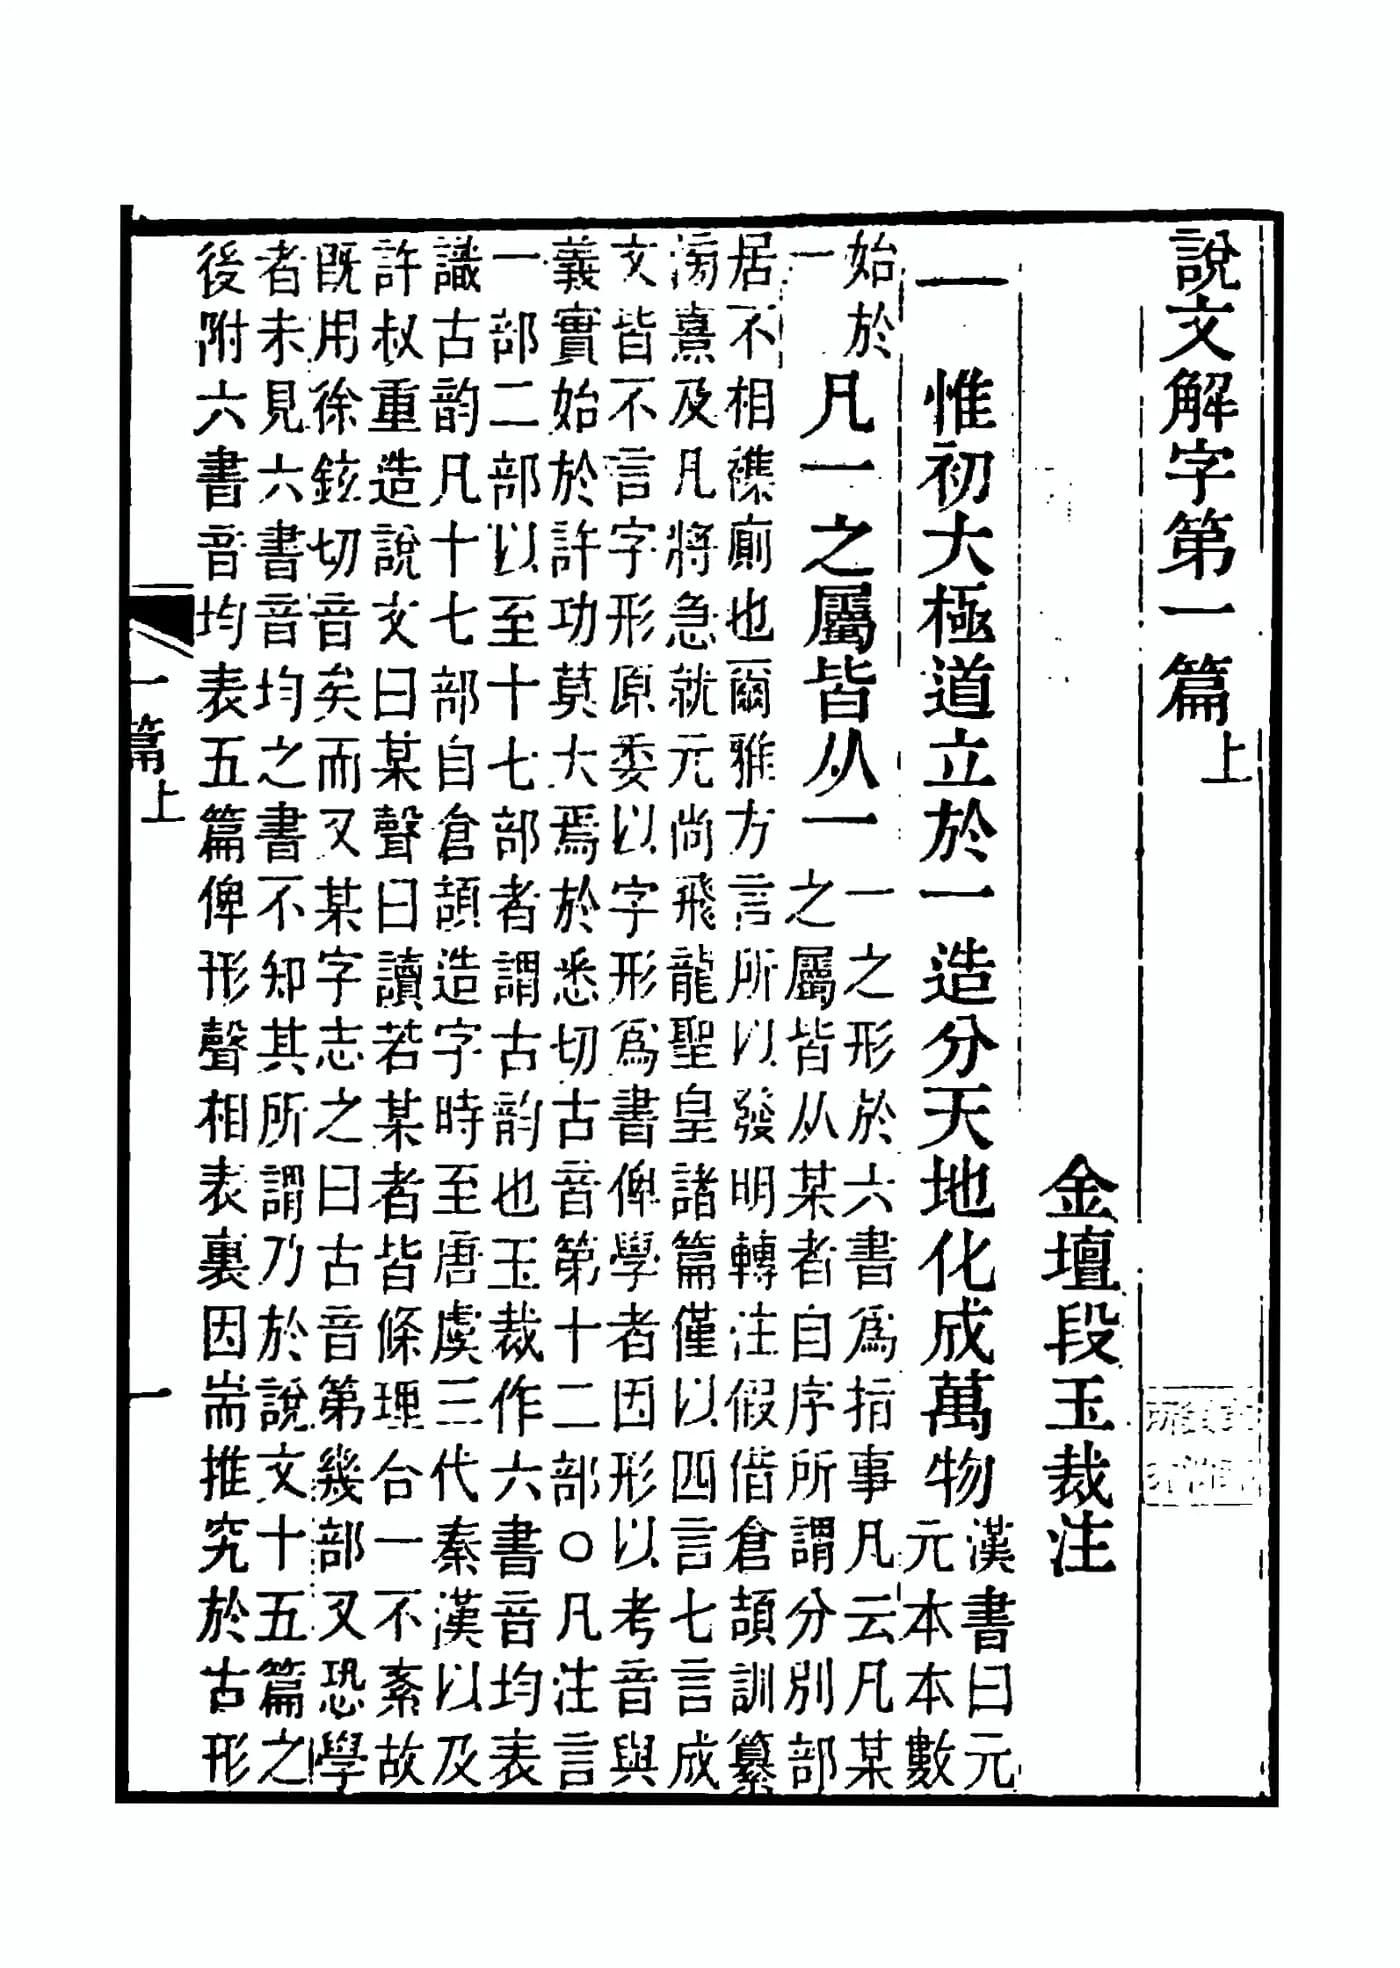 說文解字第一篇上
金壇段玉裁注
一 惟初大極道立於一造分天地化成萬物
漢書曰元
元本本數
始於
一
凡一之屬皆从一
一之形於六書爲指事凡云凡某
之屬皆从某者自序所謂分別部
居不相襍廁也爾雅方言所以發明轉注假借倉頡訓纂
滂熹及凡將急就元尚飛龍聖皇諸篇僅以四言七言成
文皆不言字形原委以字形爲書俾學者因形以考音與
義實始於許功莫大焉於悉切古音第十二部〇凡注言
一部二部以至十七部者謂古韵也玉裁作六書音均表
識古韵凡十七部自倉頡造字時至唐虞三代秦漢以及
許叔重造說文曰某聲曰讀若某者皆條理合一不紊故
既用徐鉉切音矣而又某字志之曰古音第幾部又恐學
者未見六書音均之書不知其所謂乃於說文十五篇之
後附六書音均表五篇俾形聲相表裏因耑推究於古形
一篇上 一